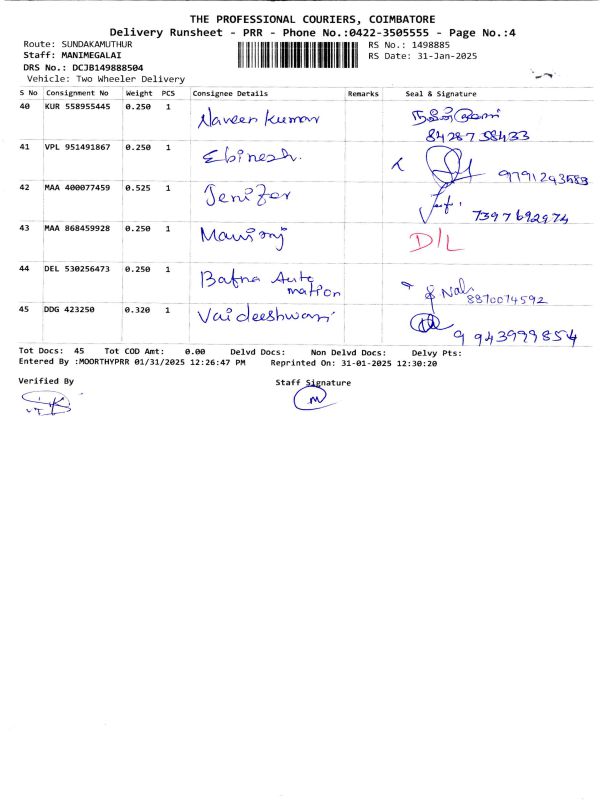 THE PROFESSIONAL COURIERS, COIMBATORE
Delivery Runsheet - PRR - Phone No.:0422-3505555 - Page No.:4
Route: SUNDAKAMUTHUR
RS No.: 1498885
Staff: MANIMEGALAI
RS Date: 31-Jan-2025
DRS No.: DCJB149888504
Vehicle: Two Wheeler Delivery
S No Consignment No Weight PCS Consignee Details Remarks Seal & Signature
40 KUR 558955445 0.250 1 Naveen Kumar
8428738433
41 VPL 951491867 0.250 1 Ebinesh.
42 MAA 400077459 0.525 1 Jenifer
7397692974
43 MAA 868459928 0.250 1 D/L
44 DEL 530256473 0.250 1 Bafna Auto
mation
8870074592
45 DDG 423250 0.320 1 Vaideeshwari
9943999854
Tot Docs: 45 Tot COD Amt: 0.00 Delvd Docs: Non Delvd Docs: Delvy Pts:
Entered By :MOORTHYPRR 01/31/2025 12:26:47 PM Reprinted On: 31-01-2025 12:30:20
Verified By Staff Signature